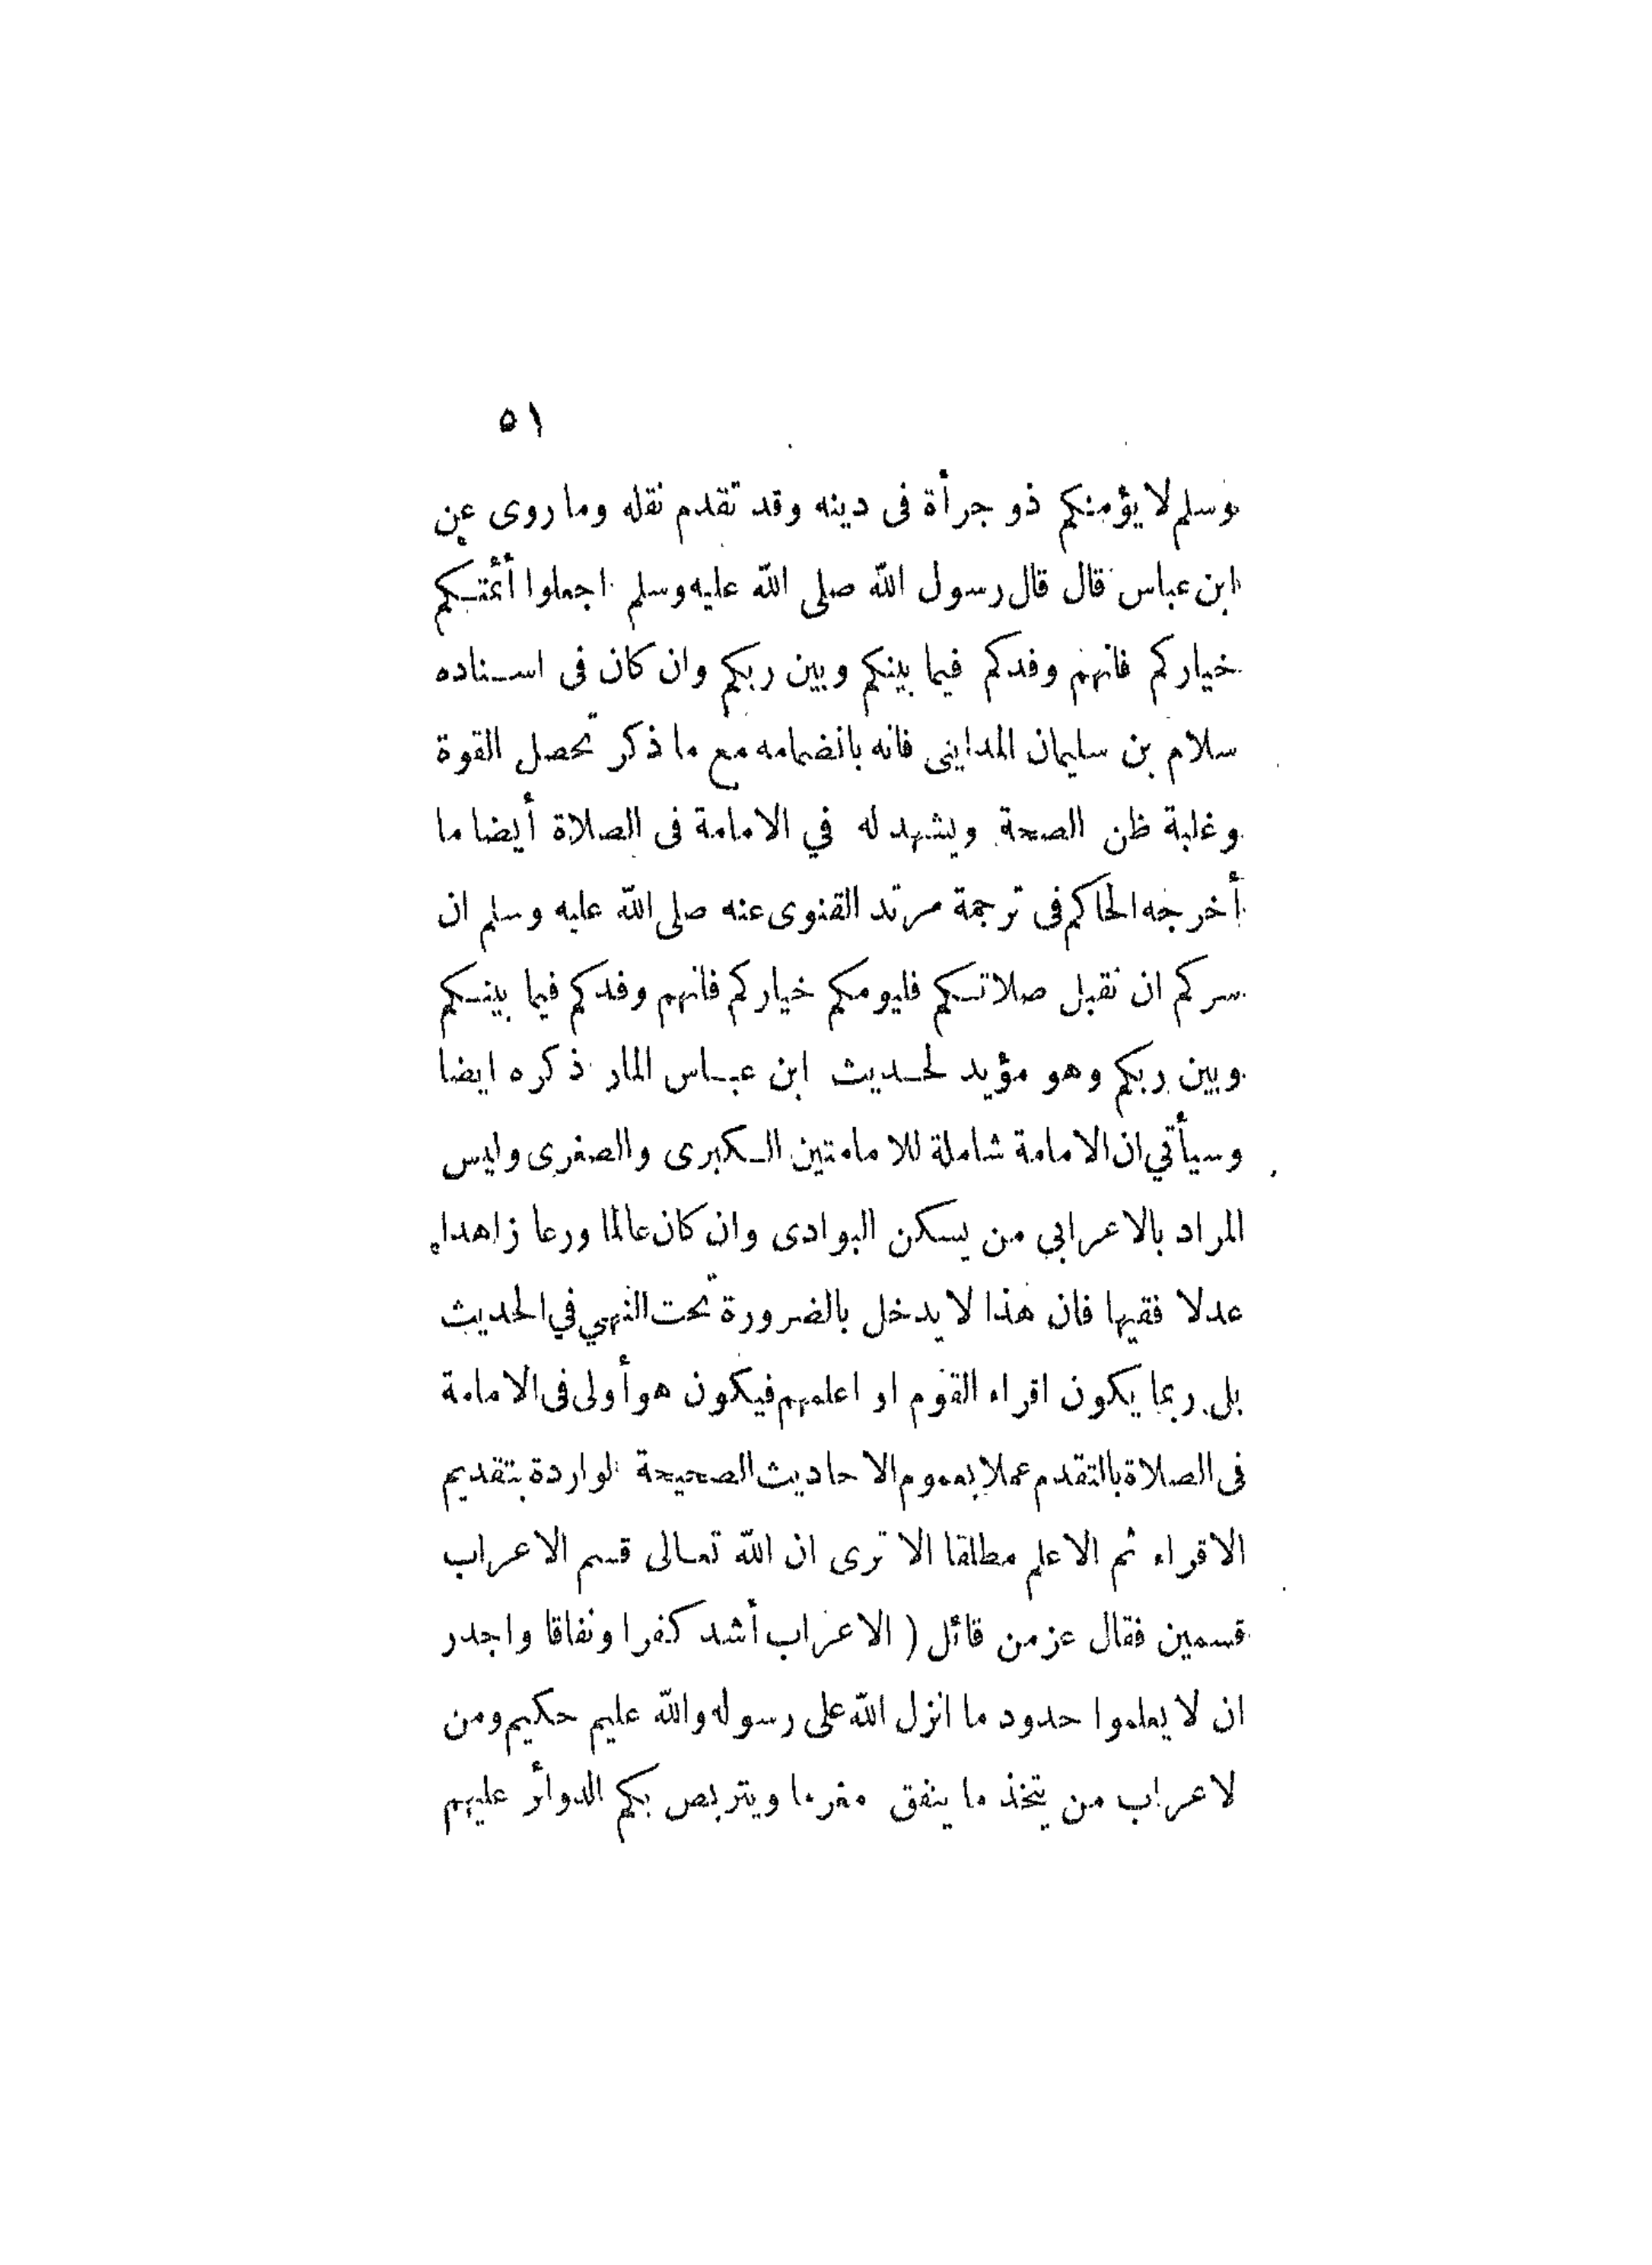 ٥١
وسلم لا يؤمنكم ذو جرأة فى دينه وقد تقدم نقله وما روى عن
ابن عباس قال قال رسول الله صلى الله عليه وسلم اجعلوا أئمتكم
خياركم فانهم وفدكم فيما بينكم وبين ربكم وان كان فى اسناده
سلام بن سليمان المداينى فانه بانضمامه مع ما ذكر تحصل القوة
وغلبة ظن الصحة ويشهد له في الامامة فى الصلاة أيضا ما
أخرجه الحاكم فى ترجمة مرثد القنوى عنه صلى الله عليه وسلم ان
سركم ان تقبل صلاتكم فليومكم خياركم فانهم وفدكم فيما بينكم
وبين ربكم وهو مؤيد لحديث ابن عباس المار ذكره ايضا
وسيأتي ان الامامة شاملة للامامتين الكبرى والصغرى وليس
المراد بالاعرابي من يسكن البوادى وان كان عالما ورعا زاهدا
عدلا فقيها فان هذا لا يدخل بالضرورة تحت النهي في الحديث
بل ربما يكون اقراء القوم او اعلمهم فيكون هو أولى فى الامامة
فى الصلاة بالتقدم عملا بعموم الاحاديث الصحيحة لواردة بتقديم
الاقراء ثم الاعلم مطلقا الا ترى ان الله تعالى قسم الاعراب
قسمين فقال عز من قائل ( الاعراب أشد كفرا ونفاقا واجدر
ان لا يعلموا حدود ما انزل الله على رسوله والله عليم حكيم ومن
لاعراب من يتخذ ما ينفق مغرما ويتربص بكم الدوائر عليهم